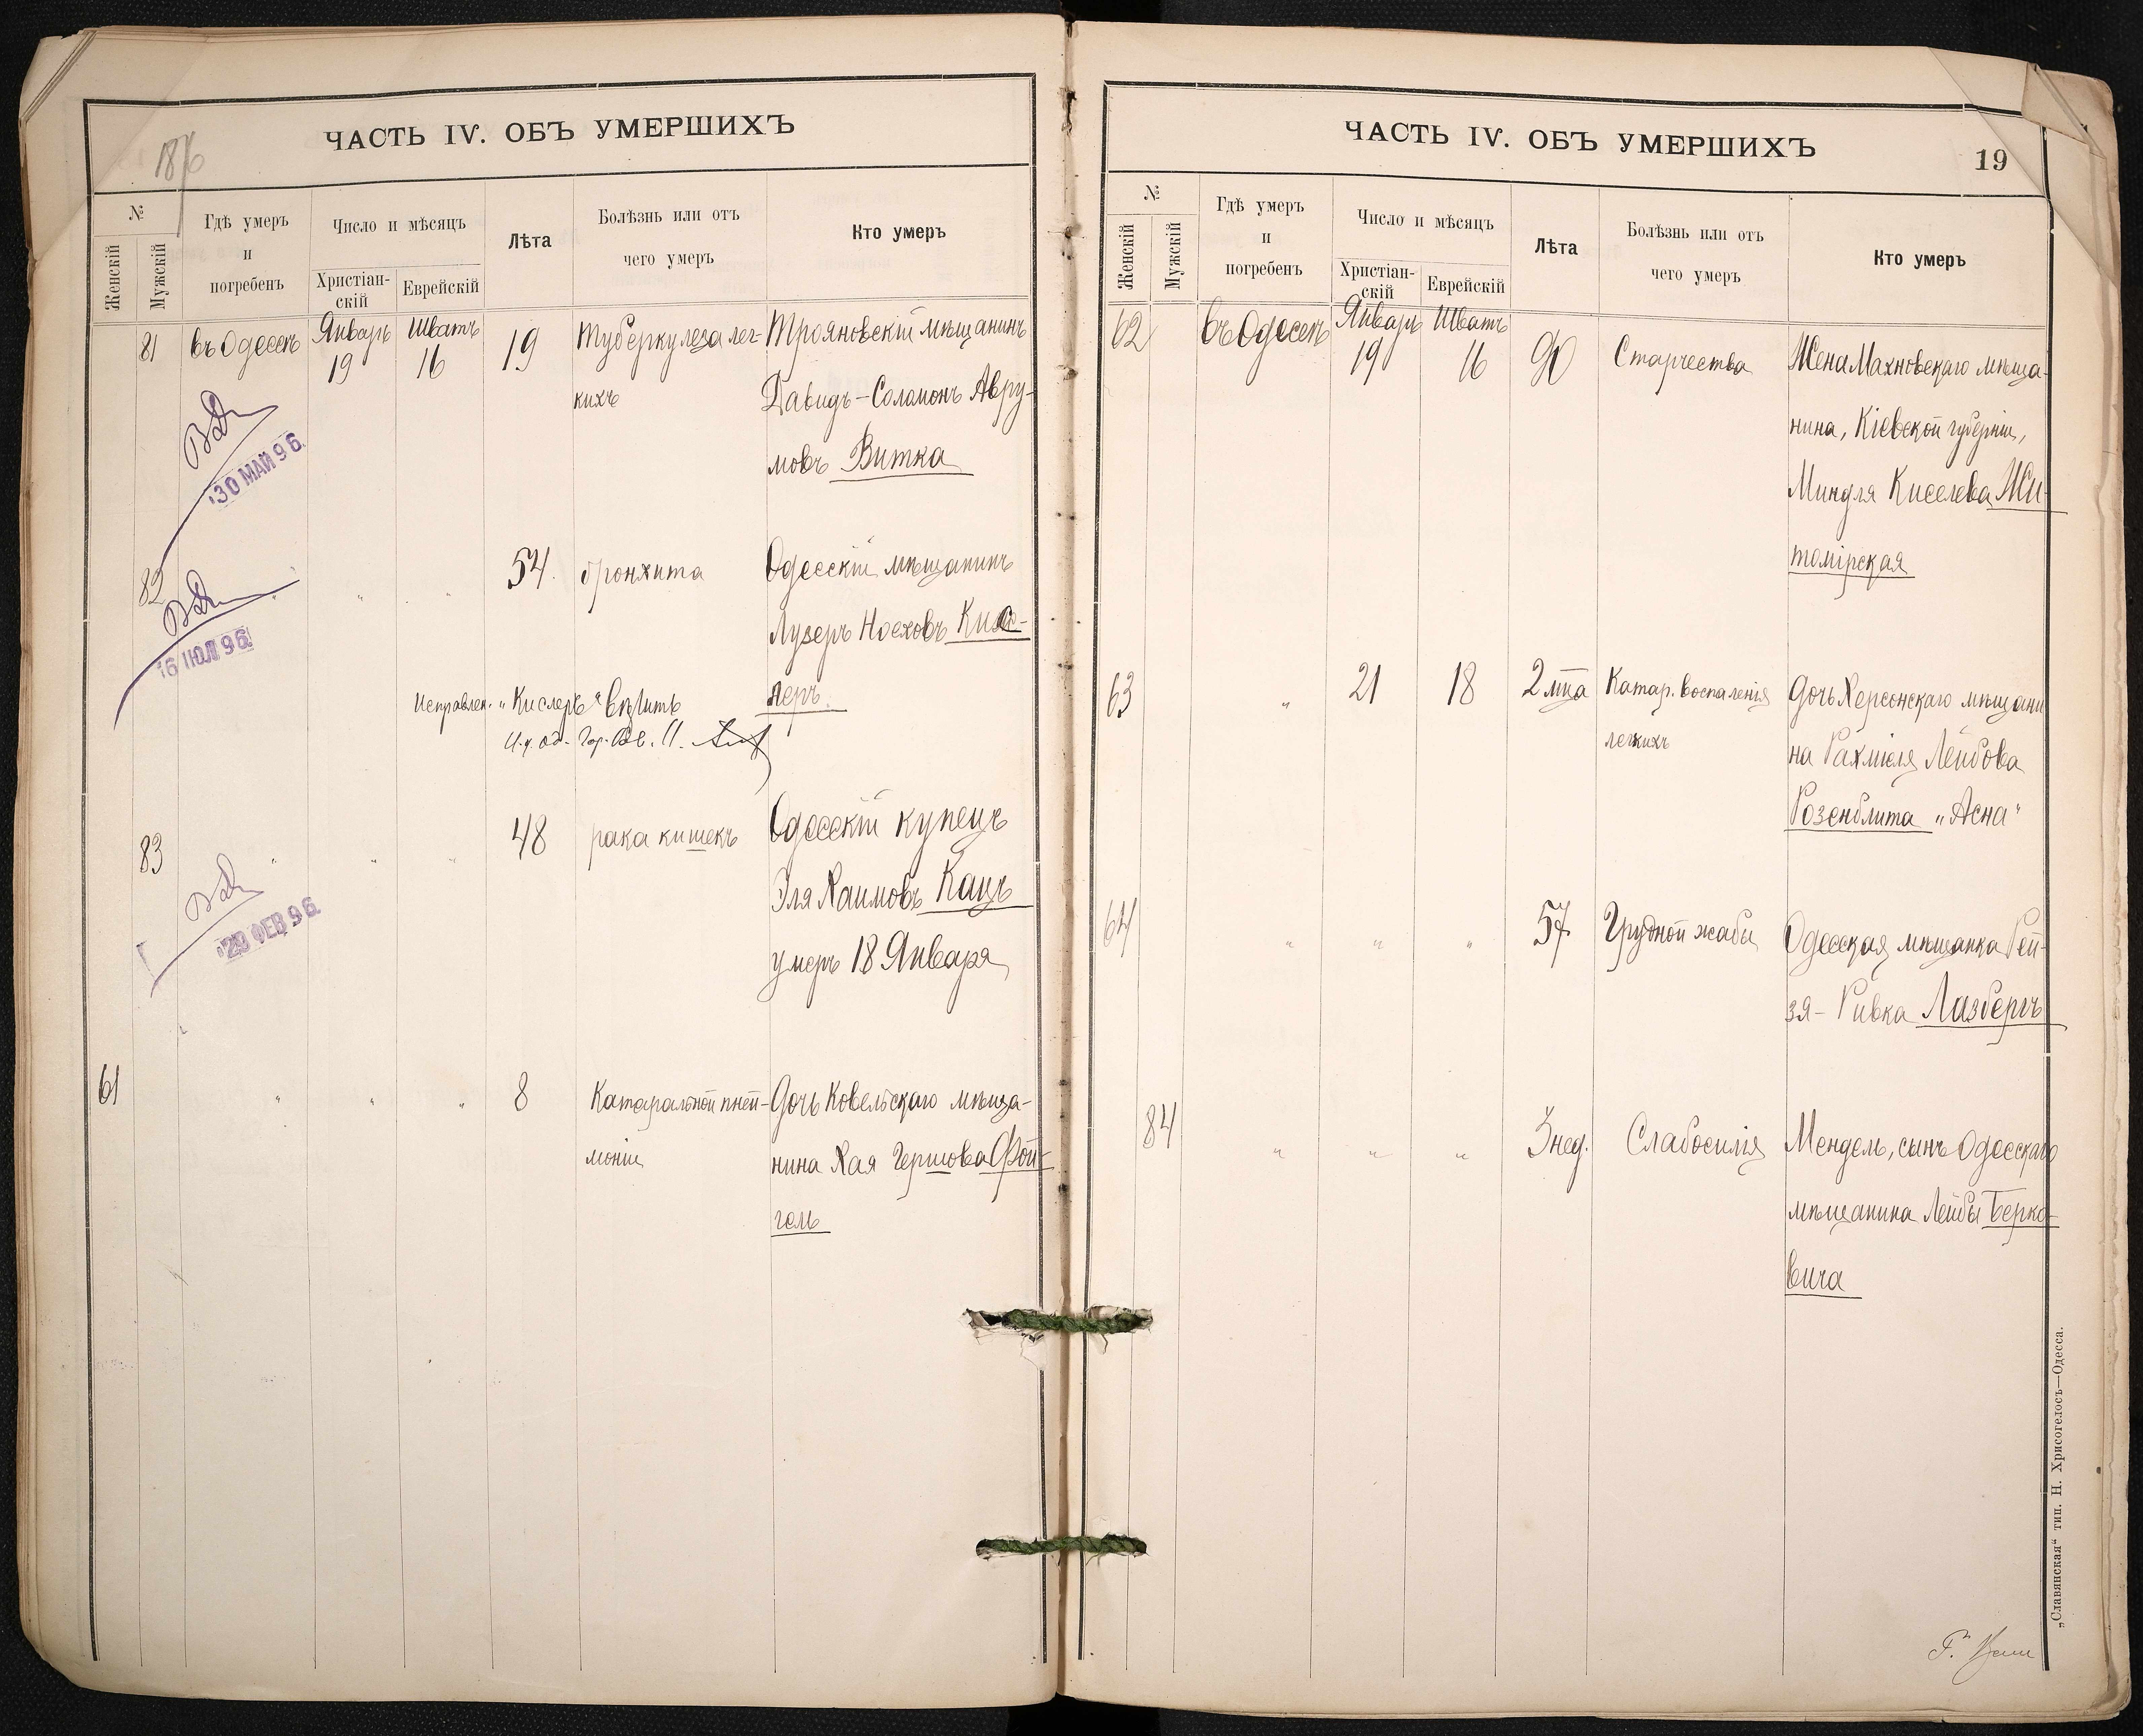 ЧАСТЬ IV. ОБЪ УМЕРШИХЪ
1896
№
Женскій
Мужскій
Гдѣ умеръ
и
погребенъ
Число и мѣсяцъ
Христіан-
скій
Еврейскій
Лѣта
Болѣзнь или отъ
чего умеръ
Кто умеръ
81 въ Одессѣ Январь 19 Шватъ 16 19 Туберкулеза лег- Трояновскій мѣщанинъ
кихъ Давидъ-Соломонъ Авру-
мовъ Витка
30 МАЙ 96
82 " " " 54. бронхита Одесскій мѣщанинъ
Лузеръ Носховъ Кис-
леръ.
16 ІЮЛ 96
Исправлен. „Кислеръ“ вѣрить
И. д. Од. Гор. Рав.
83 " " " 48 рака кишекъ Одесскій купецъ
Эля Хаимовъ Кацъ
умеръ 18 Января
29 ФЕВ 96
61 " " " 8 Катарральной пней- Дочь Ковельскаго мѣща-
моніи нина Хая Гершова Фой-
гель
ЧАСТЬ IV. ОБЪ УМЕРШИХЪ
19
№
Женскій
Мужскій
Гдѣ умеръ
и
погребенъ
Число и мѣсяцъ
Христіан-
скій
Еврейскій
Лѣта
Болѣзнь или отъ
чего умеръ
Кто умеръ
62 въ Одессѣ Январь 19 Шватъ 16 90 Старчества Жена Махновскаго мѣща-
нина, Кіевской губерніи,
Миндля Киселева Жи-
томірская
63 " 21 18 2 мца Катар. воспаленія Дочь Херсонскаго мѣщани
легкихъ на Рахміеля Лейбова
Розенблита „Асна“
64 " " " 57 Грудной жабы Одесская мѣщанка Рей-
зя-Ривка Лазбергъ
84 " " " 3 нед. Слабосилія Мендель, сынъ Одесскаго
мѣщанина Лейбы Берко-
вича
„Славянская“ тип. Н. Хрисогелосъ—Одесса.